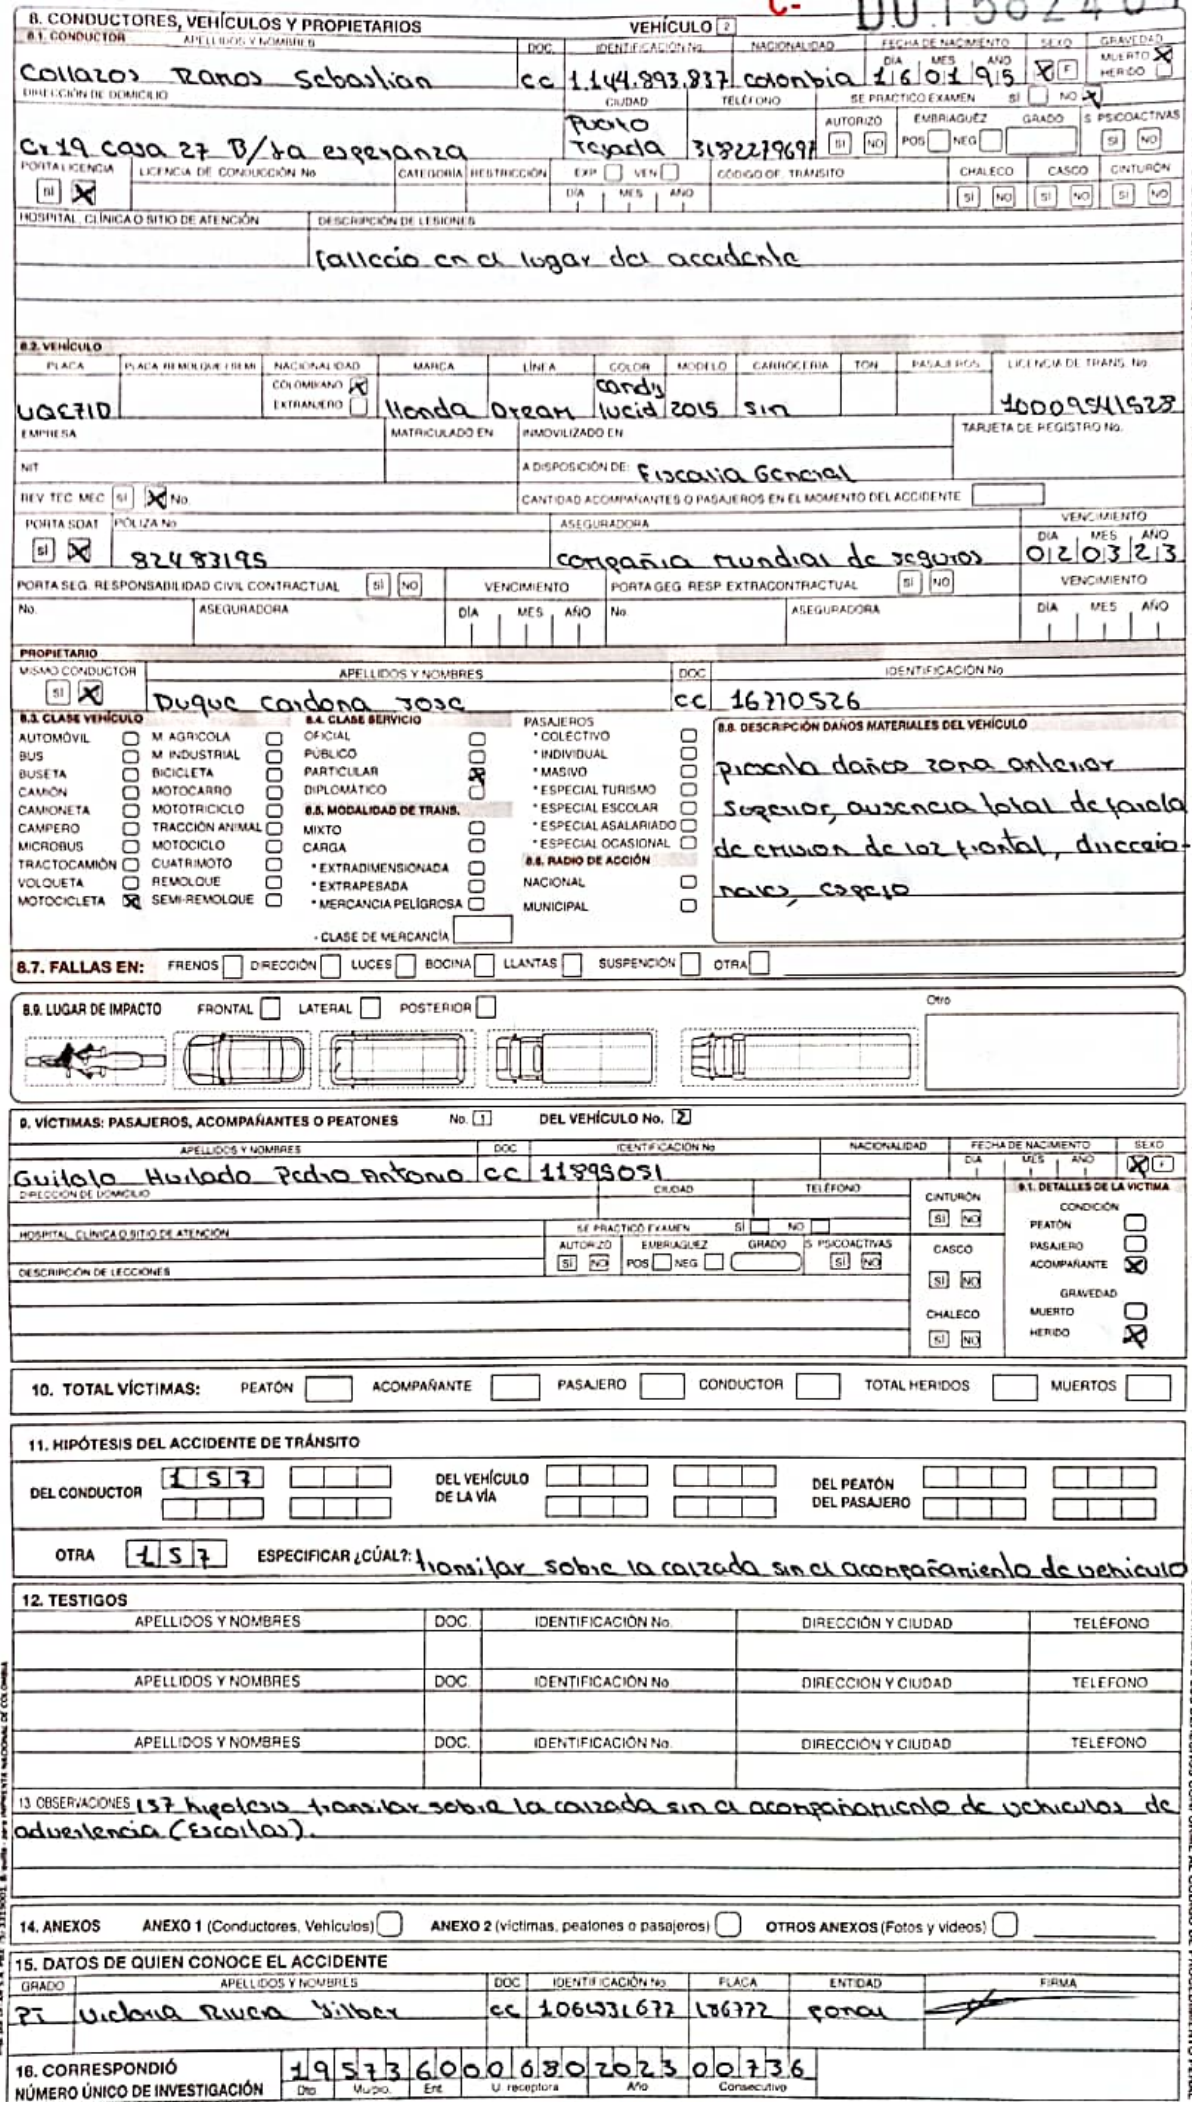 8. CONDUCTORES, VEHÍCULOS Y PROPIETARIOS VEHÍCULO 2
8.1. CONDUCTOR APELLIDOS Y NOMBRES DOC. IDENTIFICACIÓN No. NACIONALIDAD FECHA DE NACIMIENTO SEXO GRAVEDAD
DÍA MES AÑO MUERTO X
Collazos Ramos Sebastian CC 1.144.893.837 colombia 16 01 95 X F HERIDO
DIRECCIÓN DE DOMICILIO CIUDAD TELÉFONO SE PRACTICO EXAMEN SI NO X
AUTORIZO EMBRIAGUEZ GRADO S PSICOACTIVAS
Puerto
Cr 19 casa 27 B/La esperanza Tejada 3182279697 SI NO POS NEG SI NO
PORTA LICENCIA LICENCIA DE CONDUCCIÓN No CATEGORÍA RESTRICCIÓN EXP VEN CÓDIGO OF. TRÁNSITO CHALECO CASCO CINTURÓN
SI X DÍA MES AÑO SI NO SI NO SI NO
HOSPITAL, CLÍNICA O SITIO DE ATENCIÓN DESCRIPCIÓN DE LESIONES
fallecio en el lugar del accidente
8.2. VEHÍCULO
PLACA PLACA REMOLQUE / SEMI NACIONALIDAD MARCA LÍNEA COLOR MODELO CARROCERIA TON PASAJEROS LICENCIA DE TRANS. No.
COLOMBIANO X candy
UQE71D EXTRANJERO Honda Dream lucid 2015 sin 10009541528
EMPRESA MATRICULADO EN INMOVILIZADO EN TARJETA DE REGISTRO No.
NIT A DISPOSICIÓN DE: Fiscalia General
REV TEC MEC SI X No. CANTIDAD ACOMPAÑANTES O PASAJEROS EN EL MOMENTO DEL ACCIDENTE
PORTA SOAT PÓLIZA No ASEGURADORA VENCIMIENTO
DÍA MES AÑO
SI X 82483195 compañia mundial de seguros 02 03 23
PORTA SEG. RESPONSABILIDAD CIVIL CONTRACTUAL SI NO VENCIMIENTO PORTA GEG. RESP EXTRACONTRACTUAL SI NO VENCIMIENTO
No. ASEGURADORA DÍA MES AÑO No. ASEGURADORA DÍA MES AÑO
PROPIETARIO
MISMO CONDUCTOR APELLIDOS Y NOMBRES DOC IDENTIFICACIÓN No
SI X Duque Cardona Jose CC 16770526
8.3. CLASE VEHÍCULO
AUTOMÓVIL M AGRICOLA
BUS M INDUSTRIAL
BUSETA BICICLETA
CAMIÓN MOTOCARRO
CAMIONETA MOTOTRICICLO
CAMPERO TRACCIÓN ANIMAL
MICROBUS MOTOCICLO
TRACTOCAMIÓN CUATRIMOTO
VOLQUETA REMOLQUE
MOTOCICLETA X SEMI-REMOLQUE
8.4. CLASE SERVICIO
OFICIAL
PÚBLICO
PARTICULAR X
DIPLOMÁTICO
8.5. MODALIDAD DE TRANS.
MIXTO
CARGA
* EXTRADIMENSIONADA
* EXTRAPESADA
* MERCANCIA PELIGROSA
- CLASE DE MERCANCÍA
PASAJEROS
* COLECTIVO
* INDIVIDUAL
* MASIVO
* ESPECIAL TURISMO
* ESPECIAL ESCOLAR
* ESPECIAL ASALARIADO
* ESPECIAL OCASIONAL
8.6. RADIO DE ACCIÓN
NACIONAL
MUNICIPAL
8.8. DESCRIPCIÓN DAÑOS MATERIALES DEL VEHÍCULO
presenta daños zona anterior
superior, ausencia total de farola
de emision de luz frontal, direccio-
nales, espejo
8.7. FALLAS EN: FRENOS DIRECCIÓN LUCES BOCINA LLANTAS SUSPENCIÓN OTRA
8.9. LUGAR DE IMPACTO FRONTAL LATERAL POSTERIOR Otro
9. VÍCTIMAS: PASAJEROS, ACOMPAÑANTES O PEATONES No. 1 DEL VEHÍCULO No. 2
APELLIDOS Y NOMBRES DOC IDENTIFICACIÓN No NACIONALIDAD FECHA DE NACIMIENTO SEXO
DÍA MES AÑO X F
Hurtado Pedro Antonio CC 11895051
DIRECCIÓN DE DOMICILIO CIUDAD TELÉFONO CINTURÓN 9.1. DETALLES DE LA VÍCTIMA
SI NO CONDICIÓN
PEATÓN
HOSPITAL, CLÍNICA O SITIO DE ATENCIÓN SE PRACTICO EXAMEN SI NO
AUTORIZO EMBRIAGUEZ GRADO S PSICOACTIVAS CASCO PASAJERO
SI NO POS NEG SI NO ACOMPAÑANTE X
DESCRIPCIÓN DE LECCIONES SI NO
GRAVEDAD
CHALECO MUERTO
SI NO HERIDO X
10. TOTAL VÍCTIMAS: PEATÓN ACOMPAÑANTE PASAJERO CONDUCTOR TOTAL HERIDOS MUERTOS
11. HIPÓTESIS DEL ACCIDENTE DE TRÁNSITO
DEL CONDUCTOR 157 DEL VEHÍCULO DEL PEATÓN
DE LA VÍA DEL PASAJERO
OTRA 157 ESPECIFICAR ¿CÚAL?: transitar sobre la calzada sin el acompañamiento de vehiculo
12. TESTIGOS
APELLIDOS Y NOMBRES DOC. IDENTIFICACIÓN No. DIRECCIÓN Y CIUDAD TELÉFONO
APELLIDOS Y NOMBRES DOC. IDENTIFICACIÓN No DIRECCIÓN Y CIUDAD TELÉFONO
APELLIDOS Y NOMBRES DOC. IDENTIFICACIÓN No. DIRECCIÓN Y CIUDAD TELÉFONO
13 OBSERVACIONES 157 hipotesis transitar sobre la calzada sin el acompañamiento de vehiculos de
advertencia (Escoltas).
14. ANEXOS ANEXO 1 (Conductores, Vehículos) ANEXO 2 (víctimas, peatones o pasajeros) OTROS ANEXOS (Fotos y videos)
15. DATOS DE QUIEN CONOCE EL ACCIDENTE
GRADO APELLIDOS Y NOMBRES DOC IDENTIFICACIÓN No. PLACA ENTIDAD FIRMA
PT Victoria Rivera Yilber CC 186772 Ponal
16. CORRESPONDIÓ 195736000680202300736
NÚMERO ÚNICO DE INVESTIGACIÓN Dto Mupio. Ent. U receptora Año Consecutivo